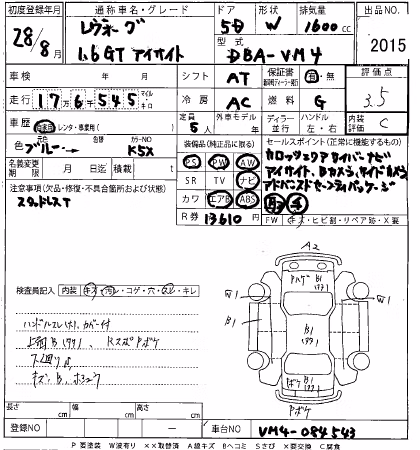 初度登録年月 通称車名・グレード ドア 形状 排気量 出品NO.
28/8月 レヴォーグ 1.6GT アイサイト 5D W 1600cc 2015
型式 DBA-VM4
車検 年 月 シフト AT 保証書 有・無 評価点 3.5
走行 17万6千545 マイル キロ 冷房 AC 燃料 G
車歴 自家用 レンタ・事業用( ) 定員 5人 外車モデル 年 ディーラー 並行 ハンドル 左・右 内装評価 C
色 ブルー→ 色替 カラーNO K5X
装備品(純正品に限る) セールスポイント(正常に機能するもの)
名義変更期限 月 日迄 積載 t
PS PW AW
SR TV ナビ
カワ エアB ABS
R券 13610円
カロッツェリアサイバーナビ
アイサイト、Bカメラ、サイドカメラ
アドバンスドセーフティパッケージ
FW キズ・ヒビ割・リペア跡・X要
注意事項(欠品・修復・不具合箇所および状態)
スタッドレスT
検査員記入 内装 キズ・汚れ・コゲ・穴・スレ・キレ
上廻りB
下廻りサ
キズ、B、
A2
W1
B1
W1
Pボケ
長さ cm 幅 cm 高さ cm
登録NO ー 車台NO VM4-084543
P要塗装 W波有り ××取替済 A線キズ Bヘコミ Sさび ×要交換 C腐食